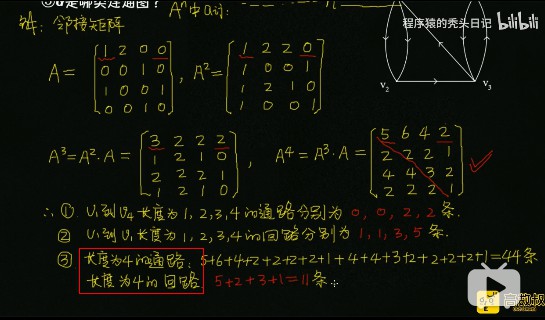 ③D是哪类连通图？ Aⁿ中aij：
程序猿的秃头日记 bilibili
解：邻接矩阵
v₂ v₃
A = [1 2 0 0
0 0 1 0
1 0 0 1
0 0 1 0], A² = [1 2 2 0
1 0 0 1
1 2 1 0
1 0 0 1]
A³=A²·A = [3 2 2 2
1 2 1 0
2 2 2 1
1 2 1 0], A⁴=A³·A = [5 6 4 2
2 2 2 1
4 4 3 2
2 2 2 1]
∴ ① v₁到v₄长度为1,2,3,4的通路分别为 0, 0, 2, 2 条.
② v₁到v₁长度为1,2,3,4的回路分别为 1, 1, 3, 5 条.
③ 长度为4的通路：5+6+4+2+2+2+2+1+4+4+3+2+2+2+2+1=44条
长度为4的回路 5+2+3+1=11条
高数叔